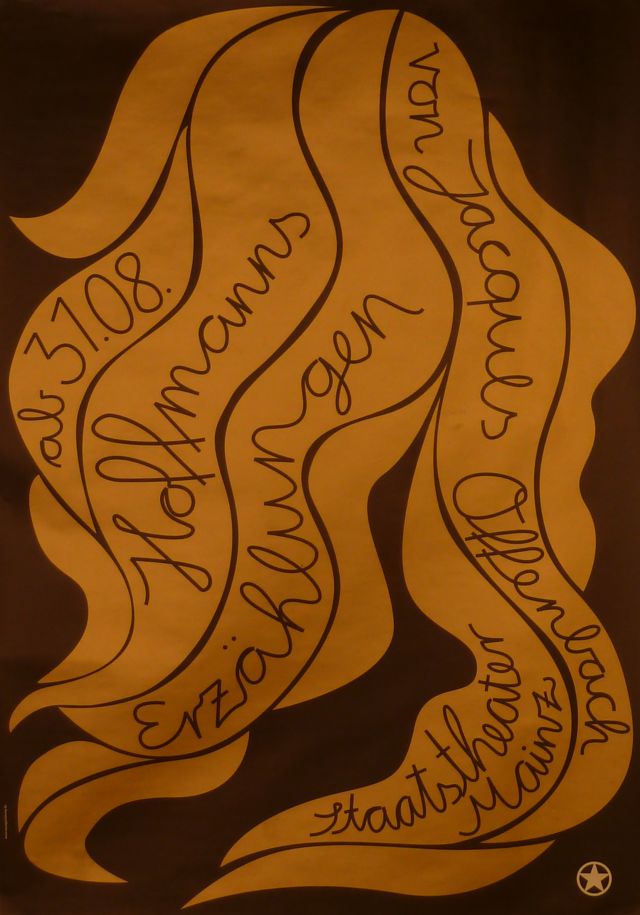 ab 31.08.
Hoffmanns
Erzählungen
von Jacques Offenbach
Staatstheater
Mainz